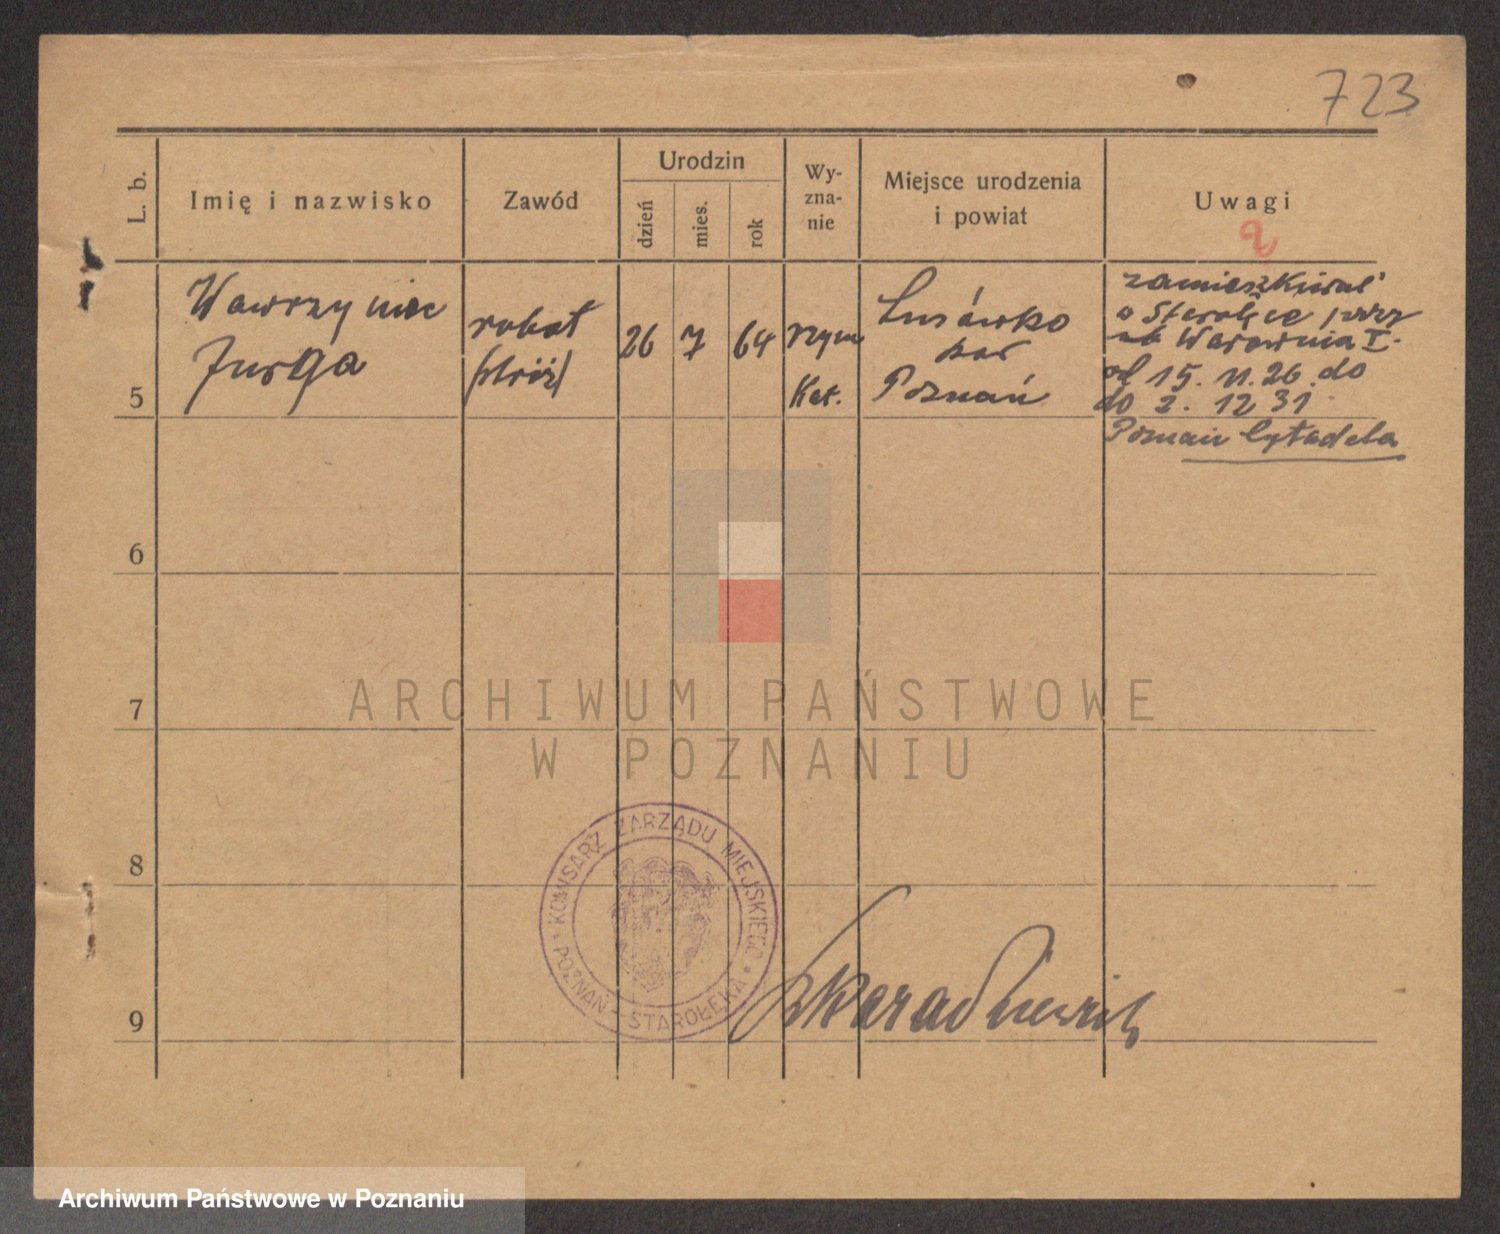 723
L. b.
Imię i nazwisko
Zawód
Urodzin
dzień
mies.
rok
Wy-
zna-
nie
Miejsce urodzenia
i powiat
Uwagi
2
5
Wawrzyniec
Jurga
robot
(stróż)
26
7
64
rzym
Kat.
Lusówko
Poznań
zamieszkiwał
w Starołęce przy
Warownia I.
od 15. 11. 26. do
do 2. 12 31
Poznań Cytadela
6
7
8
9
ARCHIWUM PAŃSTWOWE
W POZNANIU
KOMISARZ ZARZĄDU MIEJSKIEGO
POZNAŃ - STAROŁĘKA
Archiwum Państwowe w Poznaniu